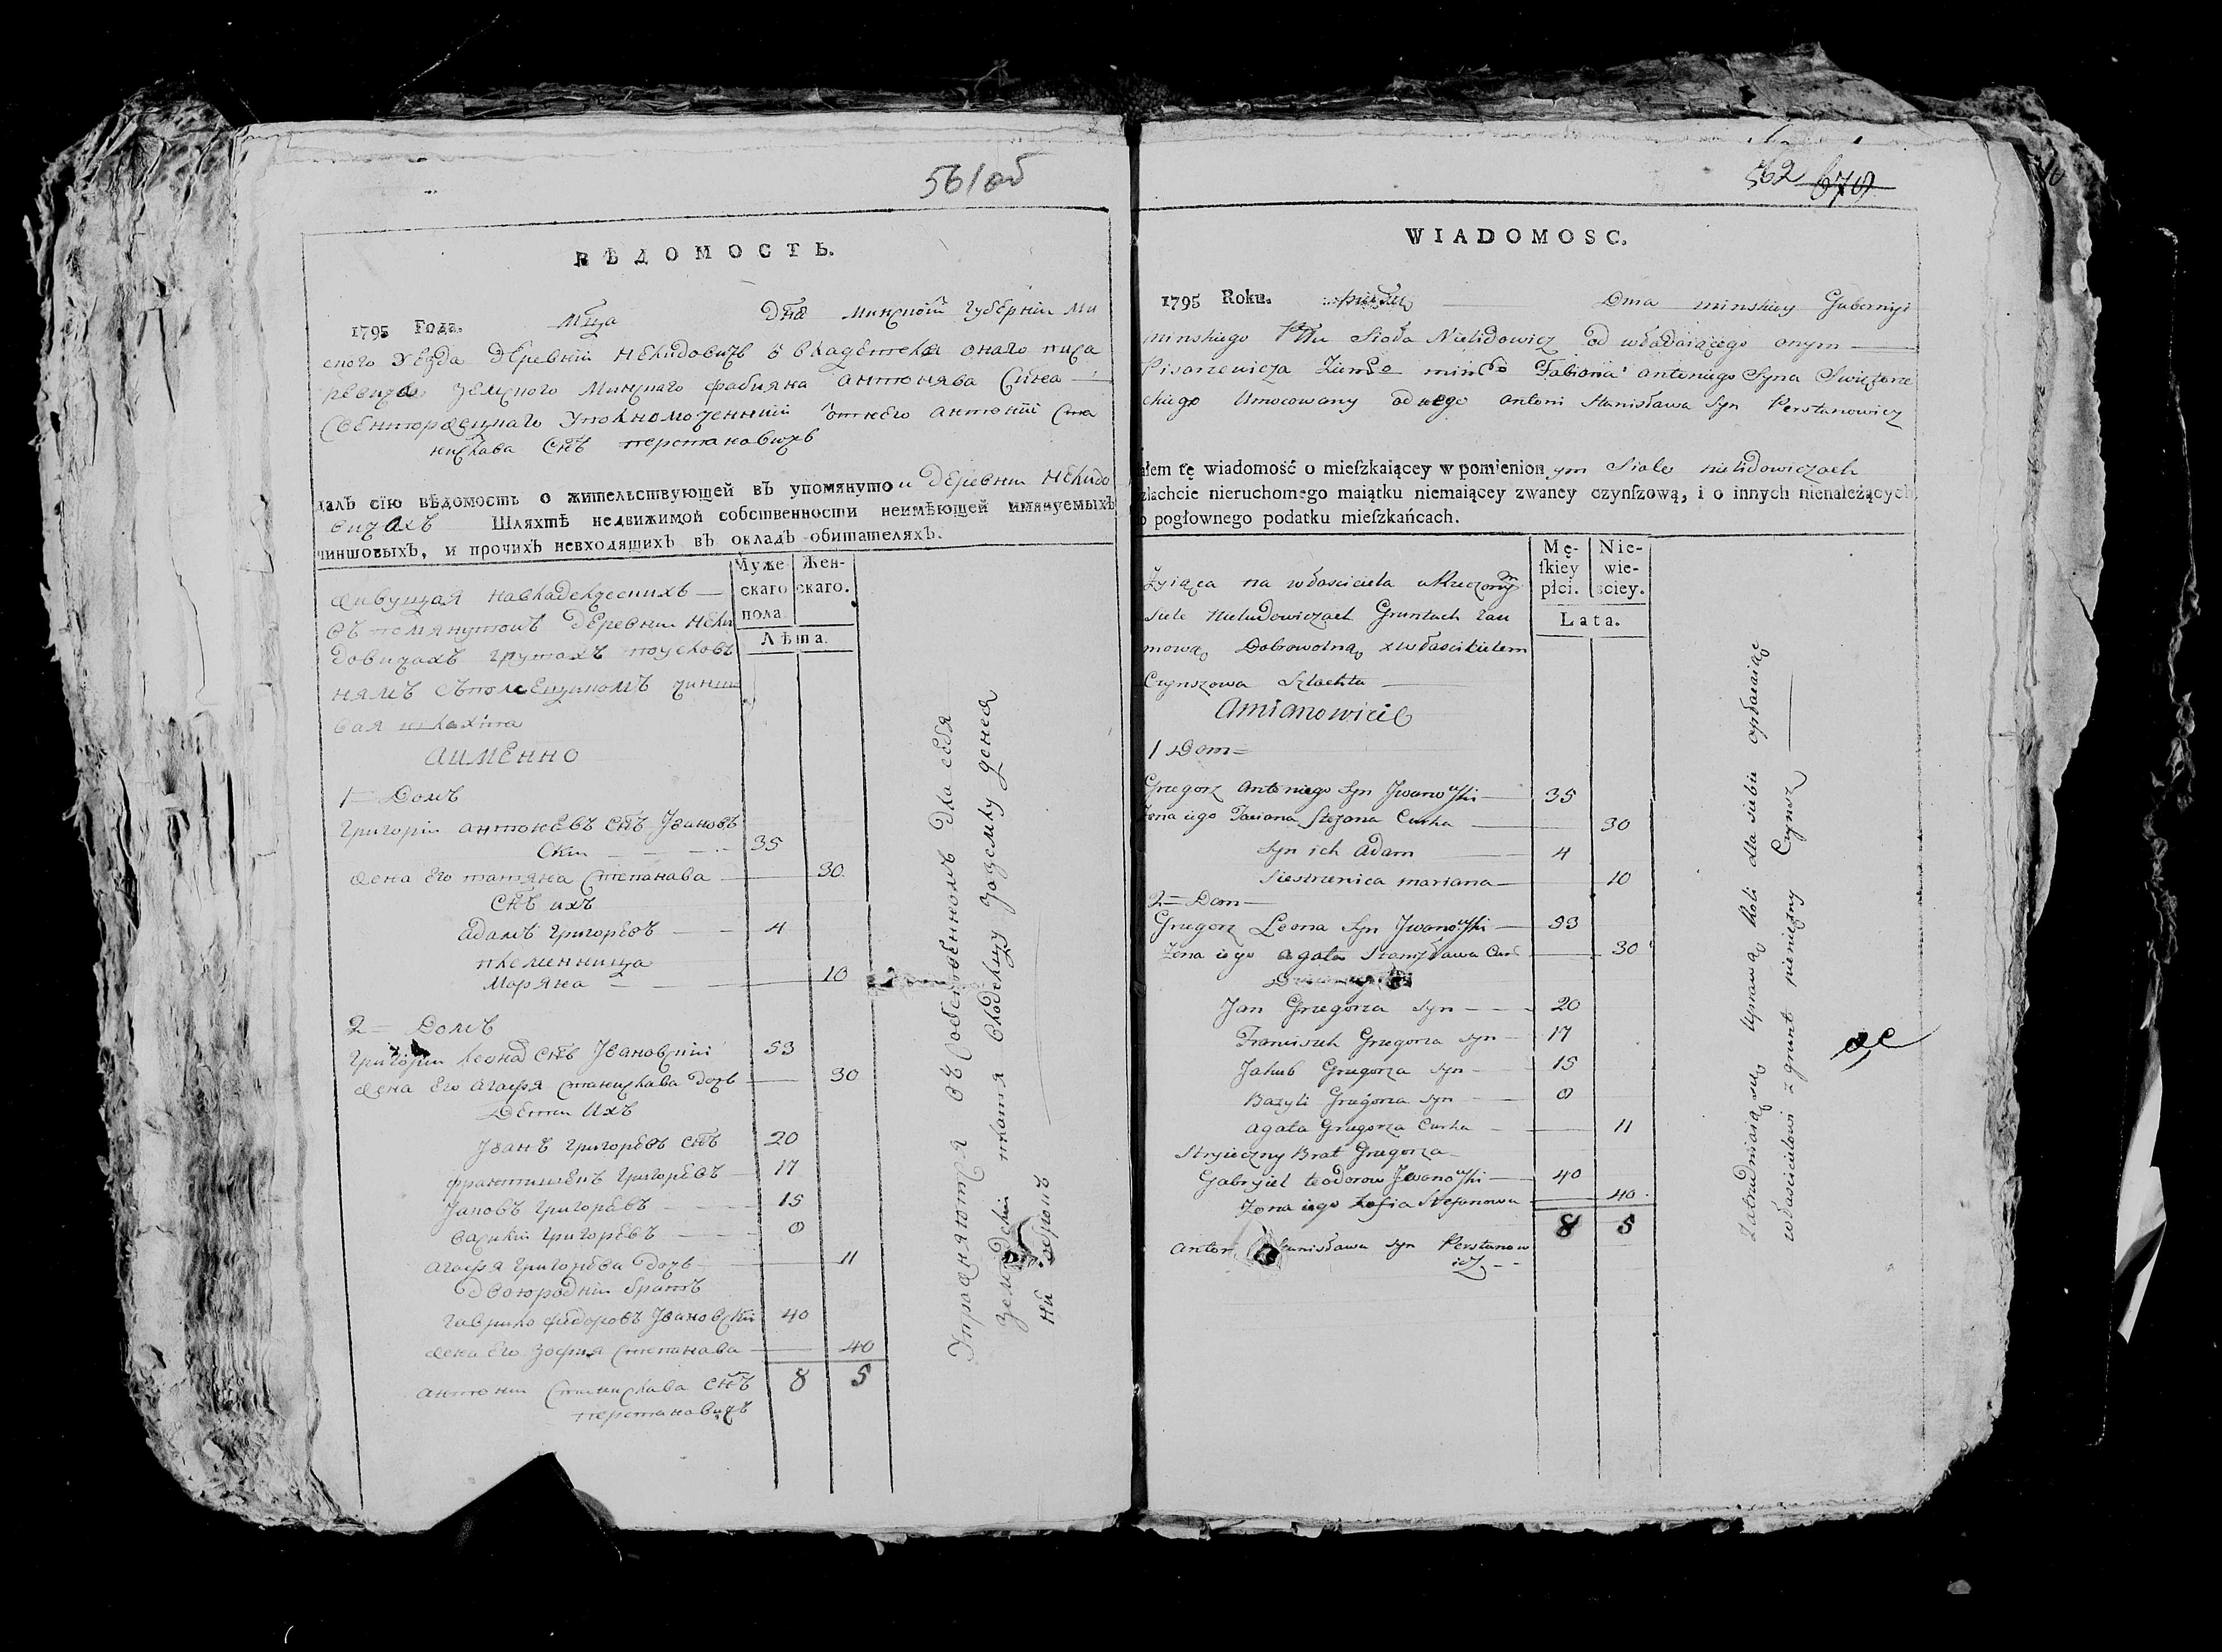 561об
ВѢДОМОСТЬ.
1795 Года. Мца Дня Минской Губерніи Ми
ского Уезда Деревни Нелидовичъ о владетеля онаго писа
ревича земского Минскаго Фабияна Антонява Сына
Свенторжецкаго Уполномоченний отнего Антоній Ста
нислава Снъ Перстановичъ
далъ сїю вѣдомость о жительствующей въ упомянутои деревни Нелидо
вичахъ Шляхтѣ недвижимой собственности неимѣющей имянуемыхъ
чиншовыхъ, и прочихъ невходящихъ въ окладъ обитателяхъ.
Муже-скаго пола. Жен-скаго.
Лѣта.
живущая навладелческихъ
въ помянутои деревни Нели
довичахъ грутахъ поуслов
нямъ съпомещикомъ чиншо
вая шляхта
аименно
1 = Домъ
Григорій антоневъ снъ Јванов
ски 35
жена его татяна Степанава 30
Снъ ихъ
адамъ Григорьевъ 4
племенница
Маряна 10
2 = Домъ
Григорій Леона снъ Јвановский 53
жена его агафя станислава дочь 30
Дети Ихъ
Јванъ Григорьевъ снъ 20
францишекъ Григоревъ 17
Јаковъ Григоревъ 15
василий Григоревъ 9
агафя Григорева дочь 11
двоюродній братъ
Гаврило фёдоровъ Јвановский 40
жена его Зофия Степанава 40
8 5
антоній Станислава снъ
перстановичъ
Упражняются въ Собственномъ Для себя
земледелии платя владелцу
562 679
WIADOMOSC.
1795 Roku. Dnia minskiey Gubernyi
minskiego Pttu Sioła Nielidowicz od władaiącego onym
Pisarzewicza Ziemsgo minsgo Fabiana antoniego Syna Swiężorze
ckiego Umocowany od nego antoni Stanisława Syn Perstanowicz
ałem tę wiadomość o mieſzkaiącey w pomienionym Siole nielidowiczach
szlachcie nieruchomego maiątku niemaiącey zwaney czynſzową, i o innych nienależących
o pogłownego podatku mieſzkańcach.
Mę-ſkiey płci. Nie-wie-sciey.
Lata.
Żyiąca na właściciela wRzeczonym
Siele Nielidowiczach Gruntach zau
mową Dobrowolną zwłaścicielem
Czynszowa Szlachta
Amianowicie
1 Dom =
Grzegorz antoniego Syn Jwanowſki 35
Żona iego Taciana Stefana Curka 30
Syn ich Adam 4
Siestrzenica mariana 10
2 = Dom
Grzegorz Leona Syn Jwanowſki 53
Żona iego agata Stanisława Cur 30
Jan Grzegorza syn 20
Franciszek Grzegorza syn 17
Jakub Grzegorza syn 15
Bazyli Grzegorza syn 9
agata Grzegorza Curka 11
Stryieczny Brat Grzegorza
Gabryiel teodorow Jwanowſki 40
Żona iego Zofia Stefanowa 40
8 5
Antoni Stanisława syn Perstanow
icz
Zatrudniaią się Uprawą Roli dla siebie opłacaiąc
właścicielowi z grunt pieniężny Czynsz